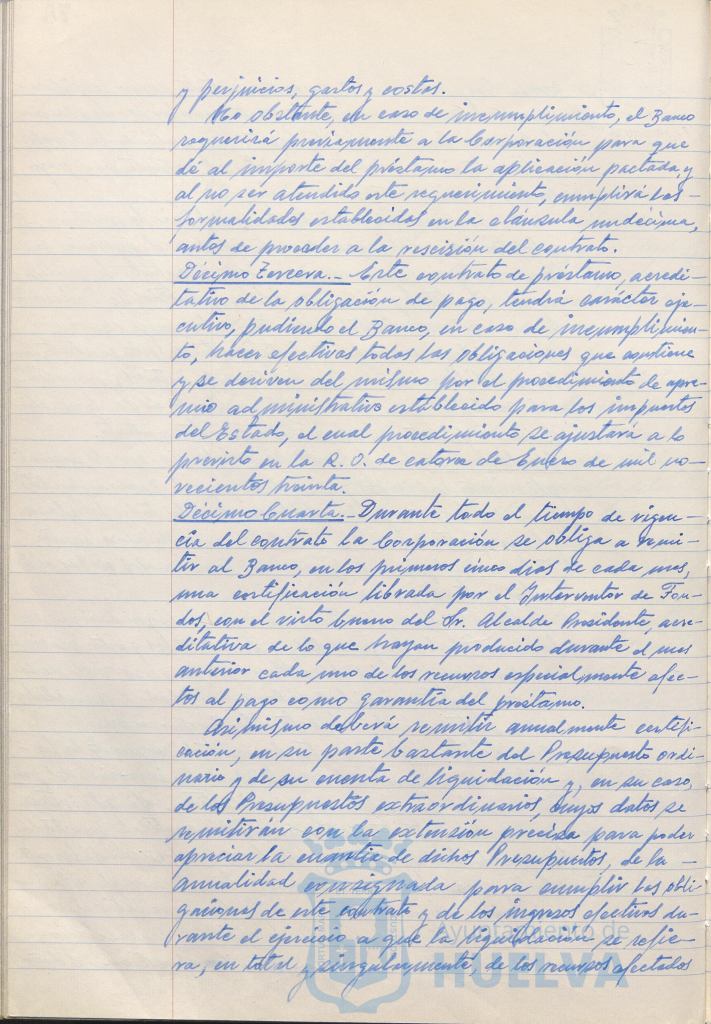 y perjuicios, gastos y costas.
No obstante, en caso de incumplimiento, el Banco
requerirá previamente a la Corporación para que
dé al importe del préstamo la aplicación pactada, y
al no ser atendido este requerimiento, cumplirá las
formalidades establecidas en la cláusula undécima,
antes de proceder a la rescisión del contrato.
Décimo Tercera.- Este contrato de préstamo, acredi-
tativo de la obligación de pago, tendrá carácter eje-
cutivo, pudiendo el Banco, en caso de incumplimien-
to, hacer efectivas todas las obligaciones que contiene
y se deriven del mismo por el procedimiento de apre-
mio administrativo establecido para los impuestos
del Estado, el cual procedimiento se ajustará a lo
previsto en la R. O. de catorce de Enero de mil no-
vecientos treinta.
Décimo Cuarta.- Durante todo el tiempo de vigen-
cia del contrato la Corporación se obliga a remi-
tir al Banco, en los primeros cinco dias de cada mes,
una certificación librada por el Interventor de Fon-
dos, con el visto bueno del Sr. Alcalde Presidente, acre-
ditativa de lo que hayan producido durante el mes
anterior cada uno de los recursos especialmente afec-
tos al pago como garantía del préstamo.
Asimismo deberá remitir anualmente certifi-
cación, en su parte bastante del Presupuesto ordi-
nario y de su cuenta de liquidación y, en su caso,
de los Presupuestos extraordinarios, cuyos datos se
remitirán con la extensión precisa para poder
apreciar la cuantía de dichos Presupuestos, de la -
anualidad consignada para cumplir las obli-
gaciones de este contrato y de los ingresos efectivos du-
rante el ejercicio a que la liquidación se refie-
ra, en total y singularmente, de los recursos afectados
Ayuntamiento de
HUELVA